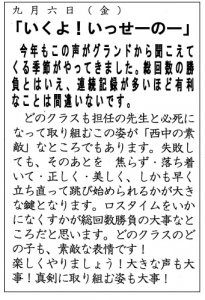 九月六日（金）
「いくよ！いっせーのー」
今年もこの声がグランドから聞こえて
くる季節がやってきました。総回数の勝
負とはいえ、連続記録が多いほど有利
なことは間違いないです。
どのクラスも担任の先生と必死に
なって取り組むこの姿が「西中の素
敵」なところでもあります。失敗して
も、そのあとを　焦らず・落ち着
いて・正しく・美しく、しかも早く
立ち直って跳び始められるかが大き
な鍵となります。ロスタイムをいか
になくすかが総回数勝負の大事なと
ころだと思います。どのクラスのど
の子も、素敵な表情です！
楽しくやりましょう！大きな声も大
事！真剣に取り組む姿も大事！